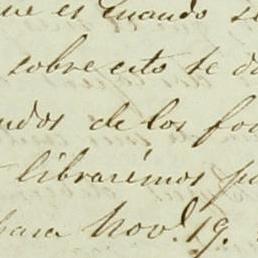 que es cuando se
sobre esto te da
ndos de los fo
libraremos p
para Novd. 19.